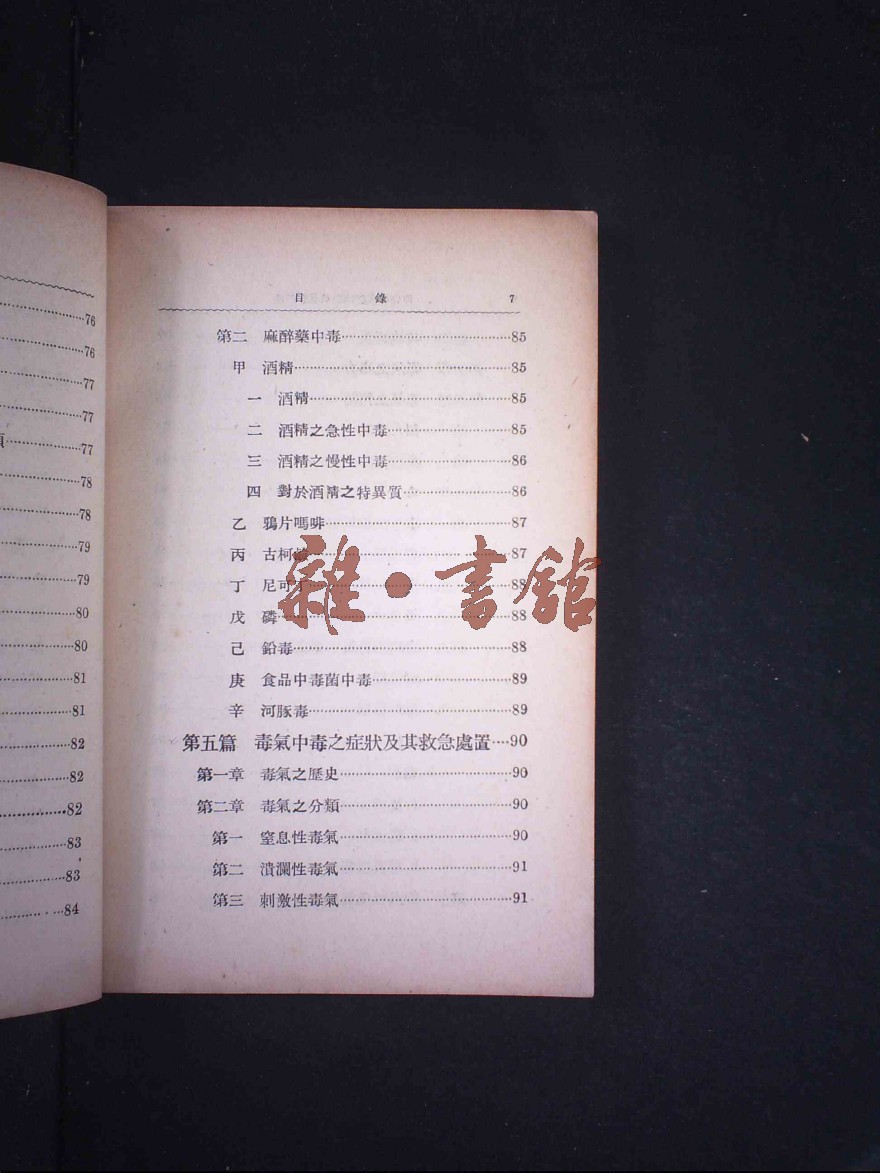 76
76
77
77
77
78
78
79
79
80
80
81
81
82
82
82
83
83
84
目 錄 7
第二 麻醉藥中毒 85
甲 酒精 85
一 酒精 85
二 酒精之急性中毒 85
三 酒精之慢性中毒 86
四 對於酒精之特異質 86
乙 鴉片嗎啡 87
丙 古柯 87
丁 尼可 88
戊 磷 88
己 鉛毒 88
庚 食品中毒菌中毒 89
辛 河豚毒 89
第五篇 毒氣中毒之症狀及其救急處置 90
第一章 毒氣之歷史 90
第二章 毒氣之分類 90
第一 窒息性毒氣 90
第二 潰瀾性毒氣 91
第三 刺激性毒氣 91
雜·書館